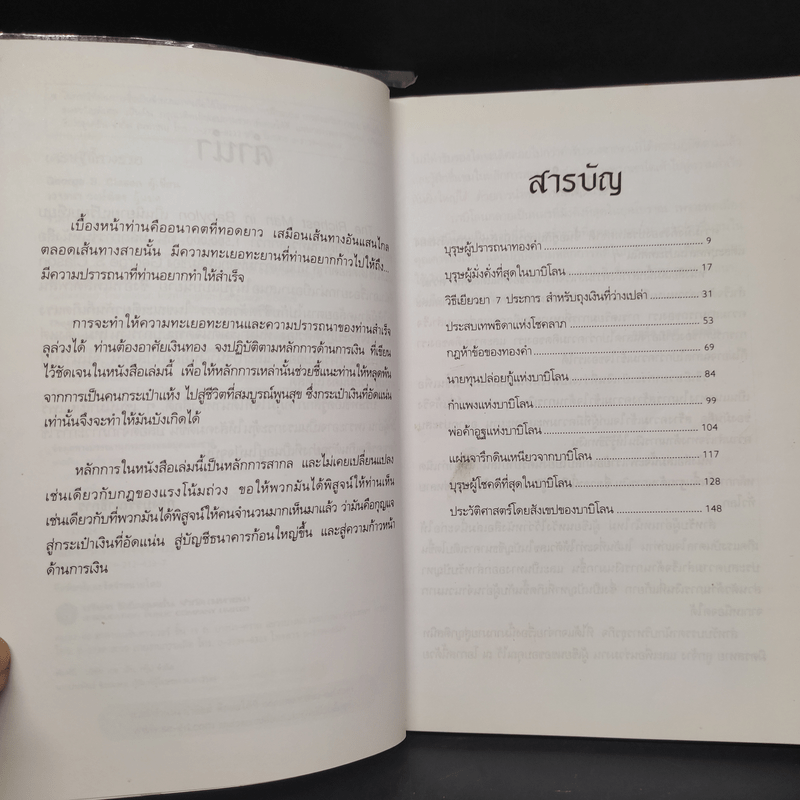 เบื้องหน้าท่านคืออนาคตที่ทอดยาว เสมือนเส้นทางอันแสนไกล
ตลอดเส้นทางสายนั้น มีความทะเยอทะยานที่ท่านอยากก้าวไปให้ถึง...
มีความปรารถนาที่ท่านอยากทำให้สำเร็จ
การจะทำให้ความทะเยอทะยานและความปรารถนาของท่านสำเร็จ
ลุล่วงได้ ท่านต้องอาศัยเงินทอง จงปฏิบัติตามหลักการด้านการเงิน ที่เขียน
ไว้ชัดเจนในหนังสือเล่มนี้ เพื่อให้หลักการเหล่านั้นช่วยชี้แนะท่านให้หลุดพ้น
จากการเป็นคนกระเป๋าแห้ง ไปสู่ชีวิตที่สมบูรณ์พูนสุข ซึ่งกระเป๋าเงินที่อัดแน่น
เท่านั้นจึงจะทำให้มันบังเกิดได้
หลักการในหนังสือเล่มนี้เป็นหลักการสากล และไม่เคยเปลี่ยนแปลง
เช่นเดียวกับกฎของแรงโน้มถ่วง ขอให้พวกมันได้พิสูจน์ให้ท่านเห็น
เช่นเดียวกับที่พวกมันได้พิสูจน์ให้คนจำนวนมากเห็นมาแล้ว ว่ามันคือกุญแจ
สู่กระเป๋าเงินที่อัดแน่น สู่บัญชีธนาคารก้อนใหญ่ขึ้น และสู่ความก้าวหน้า
ด้านการเงิน
สารบัญ
บุรุษผู้ปรารถนาทองคำ 9
บุรุษผู้มั่งคั่งที่สุดในบาบิโลน 17
วิธีเยียวยา 7 ประการ สำหรับถุงเงินที่ว่างเปล่า 31
ประสบเทพธิดาแห่งโชคลาภ 53
กฎห้าข้อของทองคำ 69
นายทุนปล่อยกู้แห่งบาบิโลน 84
กำแพงแห่งบาบิโลน 99
พ่อค้าอูฐแห่งบาบิโลน 104
แผ่นจารึกดินเหนียวจากบาบิโลน 117
บุรุษผู้โชคดีที่สุดในบาบิโลน 128
ประวัติศาสตร์โดยสังเขปของบาบิโลน 148